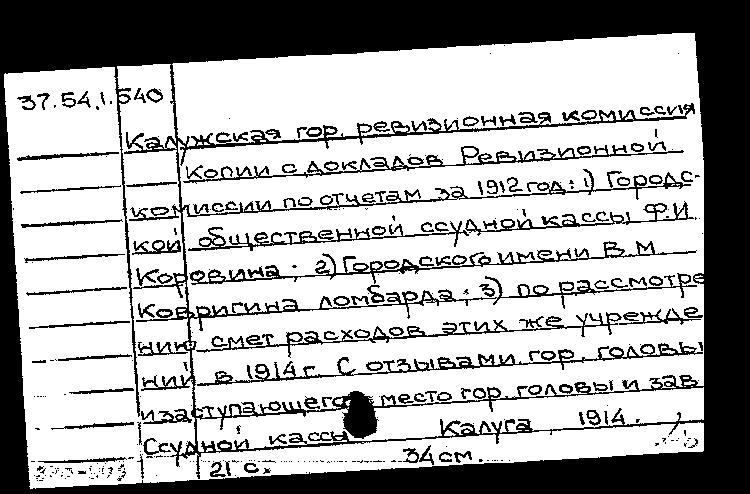 37.54.1.540.
Калужская гор. ревизионная комиссия
Копии с докладов Ревизионной
комиссии по отчетам за 1912 год: 1) Городс-
кой общественной ссудной кассы Ф.И
Коровина; 2) Городского имени В.М.
Ковригина ломбарда; 3) по рассмотре
нию смет расходов этих же учрежде
ний в 1914 г. С отзывами гор. головы
и заступающего место гор. головы и зав
Ссудной кассы Калуга, 1914.
21 с. 34 см.